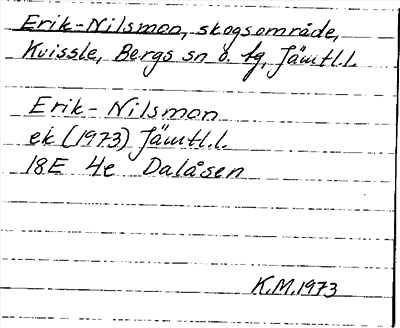 Erik-Nilsmon, skogsområde,
Kvissle, Bergs sn o. tg, Jämtl.l.
Erik-Nilsmon
ek (1973) Jämtl.l.
18E 4e Dalåsen
K.M. 1973